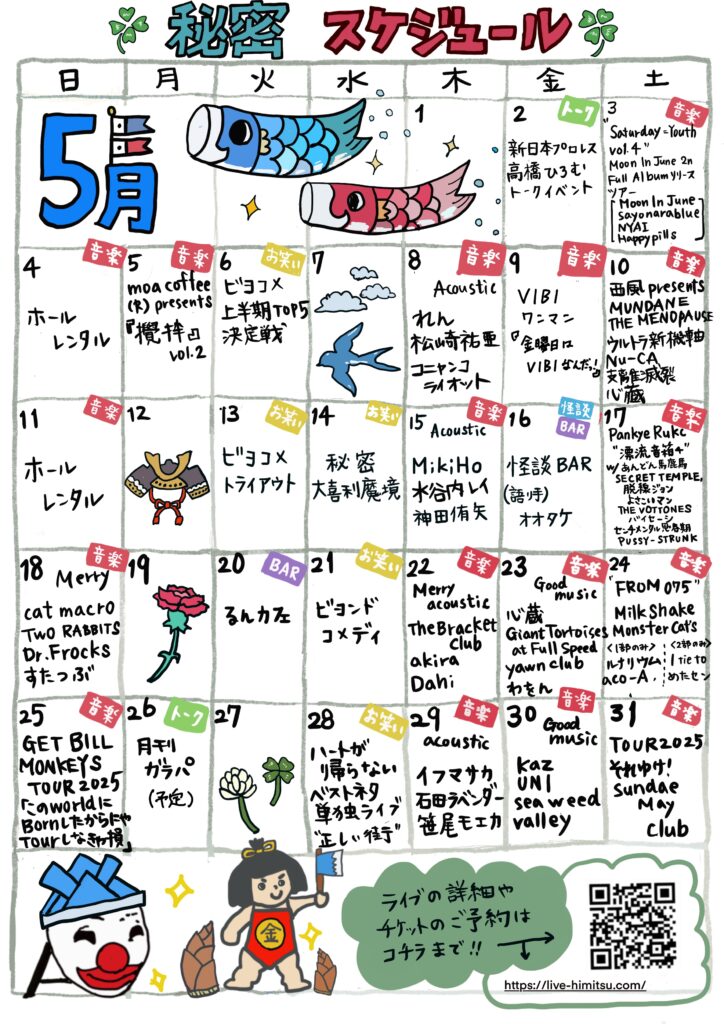 秘密 スケジュール
日 月 火 水 木 金 土
5月
1
2 トーク
新日本プロレス
高橋ひろむ
トークイベント
3 音楽
"Saturday=Youth
vol.4"
Moon In June 2n
Full Albumリリース
ツアー
Moon In June
Sayonarablue
NYAI
Happypills
4 音楽
ホール
レンタル
5 音楽
moa coffee
(R) presents
『攪拌』
vol.2
6 お笑い
ビヨコメ
上半期TOP5
決定戦
7
8 音楽
Acoustic
れん
松崎祐亜
コニャンコ
ライオット
9 音楽
VIBI
ワンマン
『金曜日は
VIBIなんだっ!』
10 音楽
西風presents
MUNDANE
THE MENOPAUSE
ウルトラ新機軸
Nu-CA
支離滅裂
心蔵
11 音楽
ホール
レンタル
12
13 お笑い
ビヨコメ
トライアウト
14 お笑い
秘密
大喜利魔境
15 音楽
Acoustic
MikiHo
水谷内レイ
神田侑矢
16 怪談
BAR
怪談BAR
(語り手)
オオタケ
17 音楽
Pankye Rukc
"漂流音箱4"
w/あんどん馬鹿馬
SECRET TEMPLE,
脱線ジョン
よさこいマン
THE VOTTONES
バイセーシ
センチメンタル思春期
PUSSY-STRUNK
18 音楽
Merry
cat macro
TWO RABBITS
Dr.Frocks
すたっぶ
19
20 BAR
るんカフェ
21 お笑い
ビヨンド
コメディ
22 音楽
Merry
acoustic
The Bracket
club
akira
Dahi
23 音楽
Good
music
心蔵
Giant Tortoises
at Full Speed
yawn club
わをん
24 音楽
"FROM 075"
Milk Shake
Monster Cat's
<1部のみ> <2部のみ>
ルナリウム 1 tie to
aco-A. めたセン
25 音楽
GET BILL
MONKEYS
TOUR 2025
「このworldに
Bornしたからにゃ
Tourしなきゃ損」
26 トーク
月刊
ガラパ
(予定)
27
28 お笑い
ハートが
帰らない
ベストネタ
単独ライブ
"正しい街で"
29 音楽
acoustic
イフマサカ
石田ラベンダー
笹尾モエカ
30 音楽
Good
music
Kaz
UNI
sea weed
valley
31 音楽
TOUR2025
それゆけ!
Sundae
May
Club
金
ライブの詳細や
チケットのご予約は
コチラまで!!
https://live-himitsu.com/